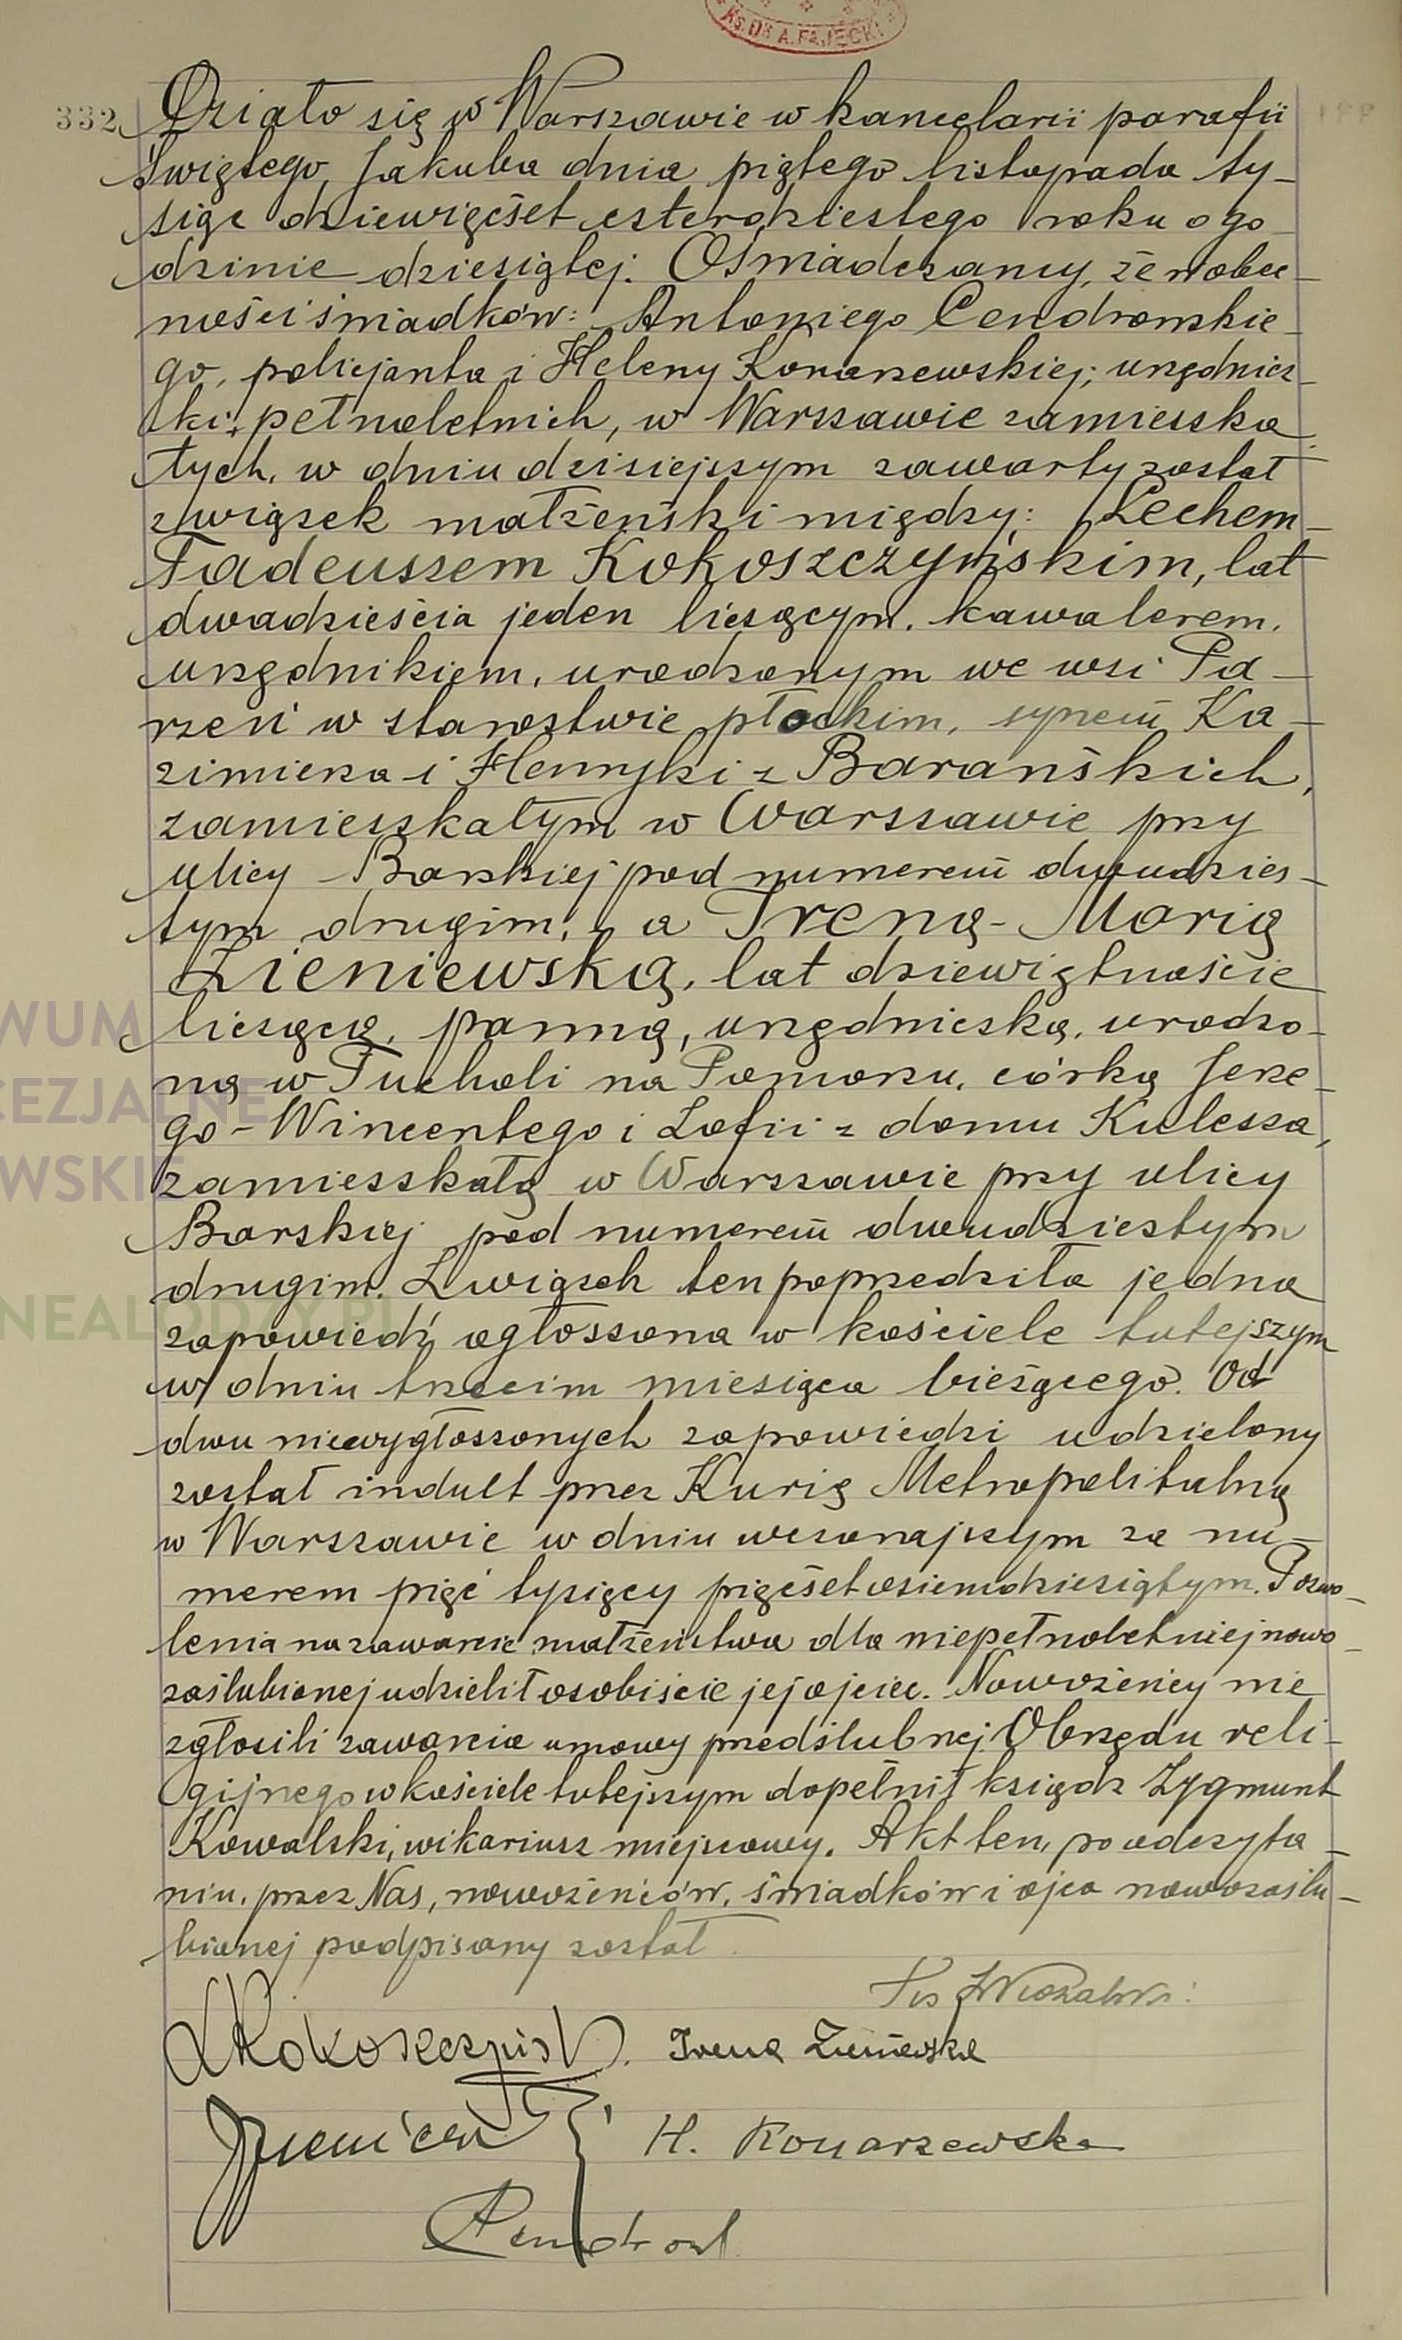 Ks. Dr A. FAJĘCKI
332 Działo się w Warszawie w kancelarii parafii
Świętego Jakuba dnia piątego listopada ty-
siąc dziewięćset czterdziestego roku o go
dzinie dziesiątej. Oświadczamy, że w obec-
ności świadków: Antoniego Cendrowskie-
go, policjanta i Heleny Konarzewskiej, urzędnicz-
ki, pełnoletnich, w Warszawie zamieszka
łych, w dniu dzisiejszym zawarty został
związek małżeński między: Lechem-
Tadeuszem Kokoszczyńskim, lat
dwadzieścia jeden liczącym, kawalerem,
urzędnikiem, urodzonym we wsi Pa-
rzeń w starostwie płockim, synem Ka-
zimierza i Henryki z Barańskich,
zamieszkałym w Warszawie przy
ulicy Barskiej pod numerem dwudzies-
tym drugim, a Ireną-Marią
Zieniewską, lat dziewiętnaście
liczącą, panną, urzędniczką, urodzo-
ną w Tucholi na Pomorzu, córką Jerze-
go-Wincentego i Zofii z domu Kulesza,
zamieszkałą w Warszawie przy ulicy
Barskiej pod numerem dwudziestym
drugim. Związek ten poprzedziła jedna
zapowiedź ogłoszona w kościele tutejszym
w dniu trzecim miesiąca bieżącego. Od
dwu niewygłoszonych zapowiedzi udzielony
został indult przez Kurię Metropolitalną
w Warszawie w dniu wczorajszym za nu-
merem pięć tysięcy pięćset osiemdziesiątym. Pozwo-
lenia na zawarcie małżeństwa dla niepełnoletniej nowo-
zaślubionej udzielił osobiście jej ojciec. Nowożeńcy nie
zgłosili zawarcia umowy przedślubnej. Obrzędu reli-
gijnego w kościele tutejszym dopełnił ksiądz Zygmunt
Kowalski, wikariusz miejscowy. Akt ten, po odczyta-
niu, przez Nas, nowożeńców, świadków i ojca nowozaślu-
bionej podpisany został.
LKokoszczyński Irena Zieniewska
H. Konarzewska
WUM
CEZJALNE
WSKIE
NEALODZY.PL